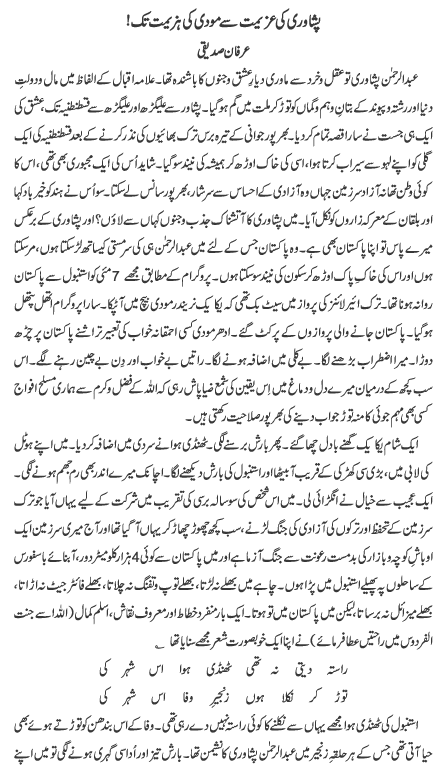 پشاوری کی عزیمت سے مودی کی ہزیمت تک!
عرفان صدیقی
عبدالرحمٰن پشاوری تو عقل و خرد سے ماوری دیارِ عشق و جنوں کا باشندہ تھا۔ علامہ اقبال کے الفاظ میں مال و دولتِ
دنیا اور رشتہ و پیوند کے بتانِ وہم و گماں کو توڑ کر ملت میں گم ہو گیا۔ پشاور سے علیگڑھ اور علیگڑھ سے قسطنطنیہ تک، عشق کی
ایک ہی جست نے سارا قصہ تمام کر دیا۔ بھرپور جوانی کے تیرہ برس ترک بھائیوں کی نذر کرنے کے بعد قسطنطنیہ کی ایک
گلی کو اپنے لہو سے سیراب کرتا ہوا، اسی کی خاک اوڑھ کر ہمیشہ کی نیند سو گیا۔ شاید اُس کی ایک مجبوری بھی تھی، اس کا
کوئی وطن تھا نہ آزاد سرزمین جہاں وہ آزادی کے احساس سے سرشار، بھرپور سانس لے سکتا۔ سو اُس نے ہند کو خیرباد کہا
اور بلقان کے معرکہ زاروں کو نکل آیا۔ میں پشاوری کا آتشناک جذب و جنوں کہاں سے لاؤں؟ اور پشاوری کے برعکس
میرے پاس تو اپنا پاکستان بھی ہے۔ وہ پاکستان جس کے لئے میں عبدالرحمٰن ہی کی سرمستی کیساتھ لڑ سکتا ہوں، مر سکتا
ہوں اور اس کی خاکِ پاک اوڑھ کر سکون کی نیند سو سکتا ہوں۔ پروگرام کے مطابق مجھے 7 مئی کو استنبول سے پاکستان
روانہ ہونا تھا۔ ترک ائیر لائنز کی پرواز میں سیٹ بک تھی کہ یکایک نریندر مودی بیچ میں آٹپکا۔ سارا پروگرام اتھل پتھل
ہو گیا۔ پاکستان جانے والی پروازوں کے پر کٹ گئے۔ ادھر مودی کسی احمقانہ خواب کی تعبیر تراشنے پاکستان پر چڑھ
دوڑا۔ میرا اضطراب بڑھنے لگا۔ بے کلی میں اضافہ ہونے لگا۔ راتیں بے خواب اور دِن بے چین رہنے لگے۔ اس
سب کچھ کے درمیان میرے دل و دماغ میں اِس یقین کی شمع ضیا پاش رہی کہ اللہ کے فضل و کرم سے ہماری مسلح افواج
کسی بھی مہم جوئی کا منہ توڑ جواب دینے کی بھرپور صلاحیت رکھتی ہیں۔
ایک شام یکایک گھنے بادل چھا گئے۔ پھر بارش برسنے لگی۔ ٹھنڈی ہوا نے سردی میں اضافہ کر دیا۔ میں اپنے ہوٹل
کی لابی میں، بڑی سی کھڑکی کے قریب آ بیٹھا اور استنبول کی بارش دیکھنے لگا۔ اچانک میرے اندر بھی رم جھم ہونے لگی۔
ایک عجیب سے خیال نے انگڑائی لی۔ میں اس شخص کی سو سالہ برسی کی تقریب میں شرکت کے لیے یہاں آیا جو ترک
سرزمین کے تحفظ اور ترکوں کی آزادی کی جنگ لڑنے، سب کچھ چھوڑ چھاڑ کر یہاں آ گیا تھا اور آج میری سرزمین ایک
اوباشِ کوچہ و بازار کی بدمست رعونت سے جنگ آزما ہے اور میں پاکستان سے کوئی 4 ہزار کلومیٹر دور، آبنائے باسفورس
کے ساحلوں پہ پھیلے استنبول میں پڑا ہوں۔ چاہے میں بھلے نہ لڑتا، بھلے توپ و تفنگ نہ چلاتا، بھلے فائٹر جیٹ نہ اڑاتا،
بھلے میزائل نہ برساتا، لیکن میں پاکستان میں تو ہوتا۔ ایک بار منفرد خطاط اور معروف نقاش، اسلم کمال (اللہ اسے جنت
الفردوس میں راحتیں عطا فرمائے) نے اپنا ایک خوبصورت شعر مجھے سنایا تھا ؎
راستہ دیتی نہ تھی ٹھنڈی ہوا اس شہر کی
توڑ کر نکلا ہوں زنجیرِ وفا اس شہر کی
استنبول کی ٹھنڈی ہوا مجھے یہاں سے نکلنے کا کوئی راستہ نہیں دے رہی تھی۔ وفا کے اس بندھن کو توڑتے ہوئے بھی
حیا آتی تھی جس کے ہر حلقۂ زنجیر میں عبدالرحمٰن پشاوری کا نشیمن تھا۔ بارش تیز اور اُداسی گہری ہونے لگی تو میں اپنے